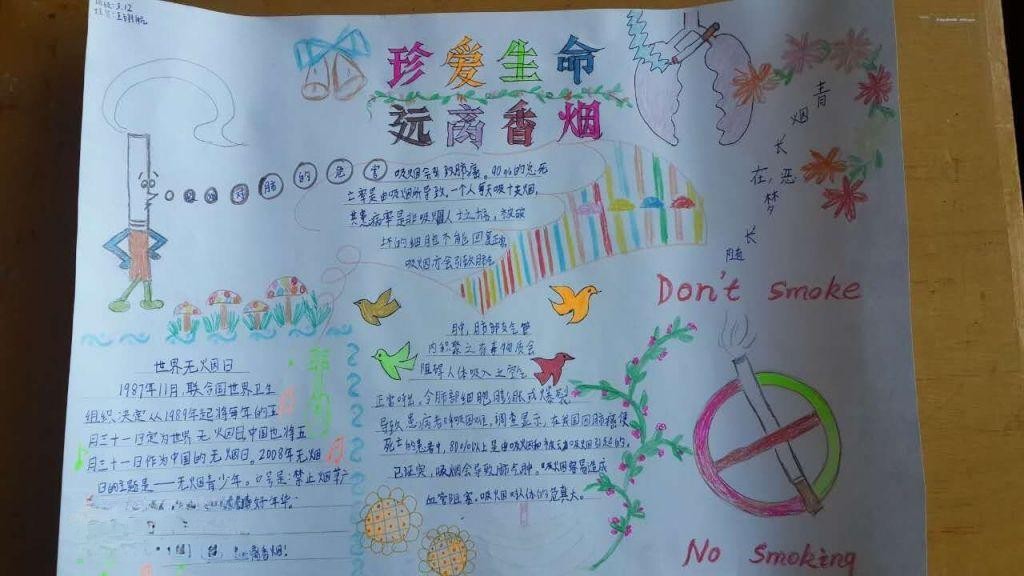 珍爱生命
远离香烟
吸烟对肺的危害
吸烟会导致肺癌。90%的总死
亡率是由吸烟所导致,一个人每天吸十支烟,
其患病率是非吸烟人士之倍,被破
坏的细胞不能回复正常
吸烟亦会引致肺气
肿,肺部支气管
内积聚之有毒物质会
阻碍人体吸入之空气
正常呼出,令肺部细胞膨胀或爆裂
导致患病者呼吸困难,调查显示,在我国因肺癌使
死亡的患者中,80%以上是由吸烟和被动吸烟引起的,
已证实,吸烟会导致肺气肿。吸烟容易造成
血管阻塞。吸烟对人体的危害大。
青烟长在,恶梦随长
Don't smoke
No Smoking
世界无火因日
1987年11月,联合国世界卫生
组织决定从1989年起将每年的五
月三十一日定为世界无火因日,中国也将五
月三十一日作为中国的无烟日。2008年无烟
日的主题是——无烟青少年。口号是:禁止烟草广
好年华.
离香烟!